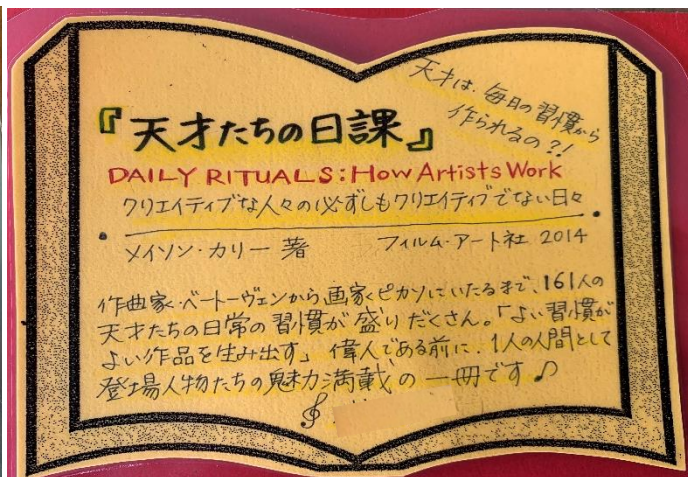 天才は、毎日の習慣から
作られるの?!
『天才たちの日課』
DAILY RITUALS: How Artists Work
クリエイティブな人々の必ずしもクリエイティブでない日々
メイソン・カリー 著 フィルム・アート社 2014
作曲家・ベートーヴェンから画家・ピカソにいたるまで、161人の
天才たちの日常の習慣が盛りだくさん。「よい習慣が
よい作品を生み出す」偉人である前に、1人の人間として
登場人物たちの魅力満載の一冊です♪